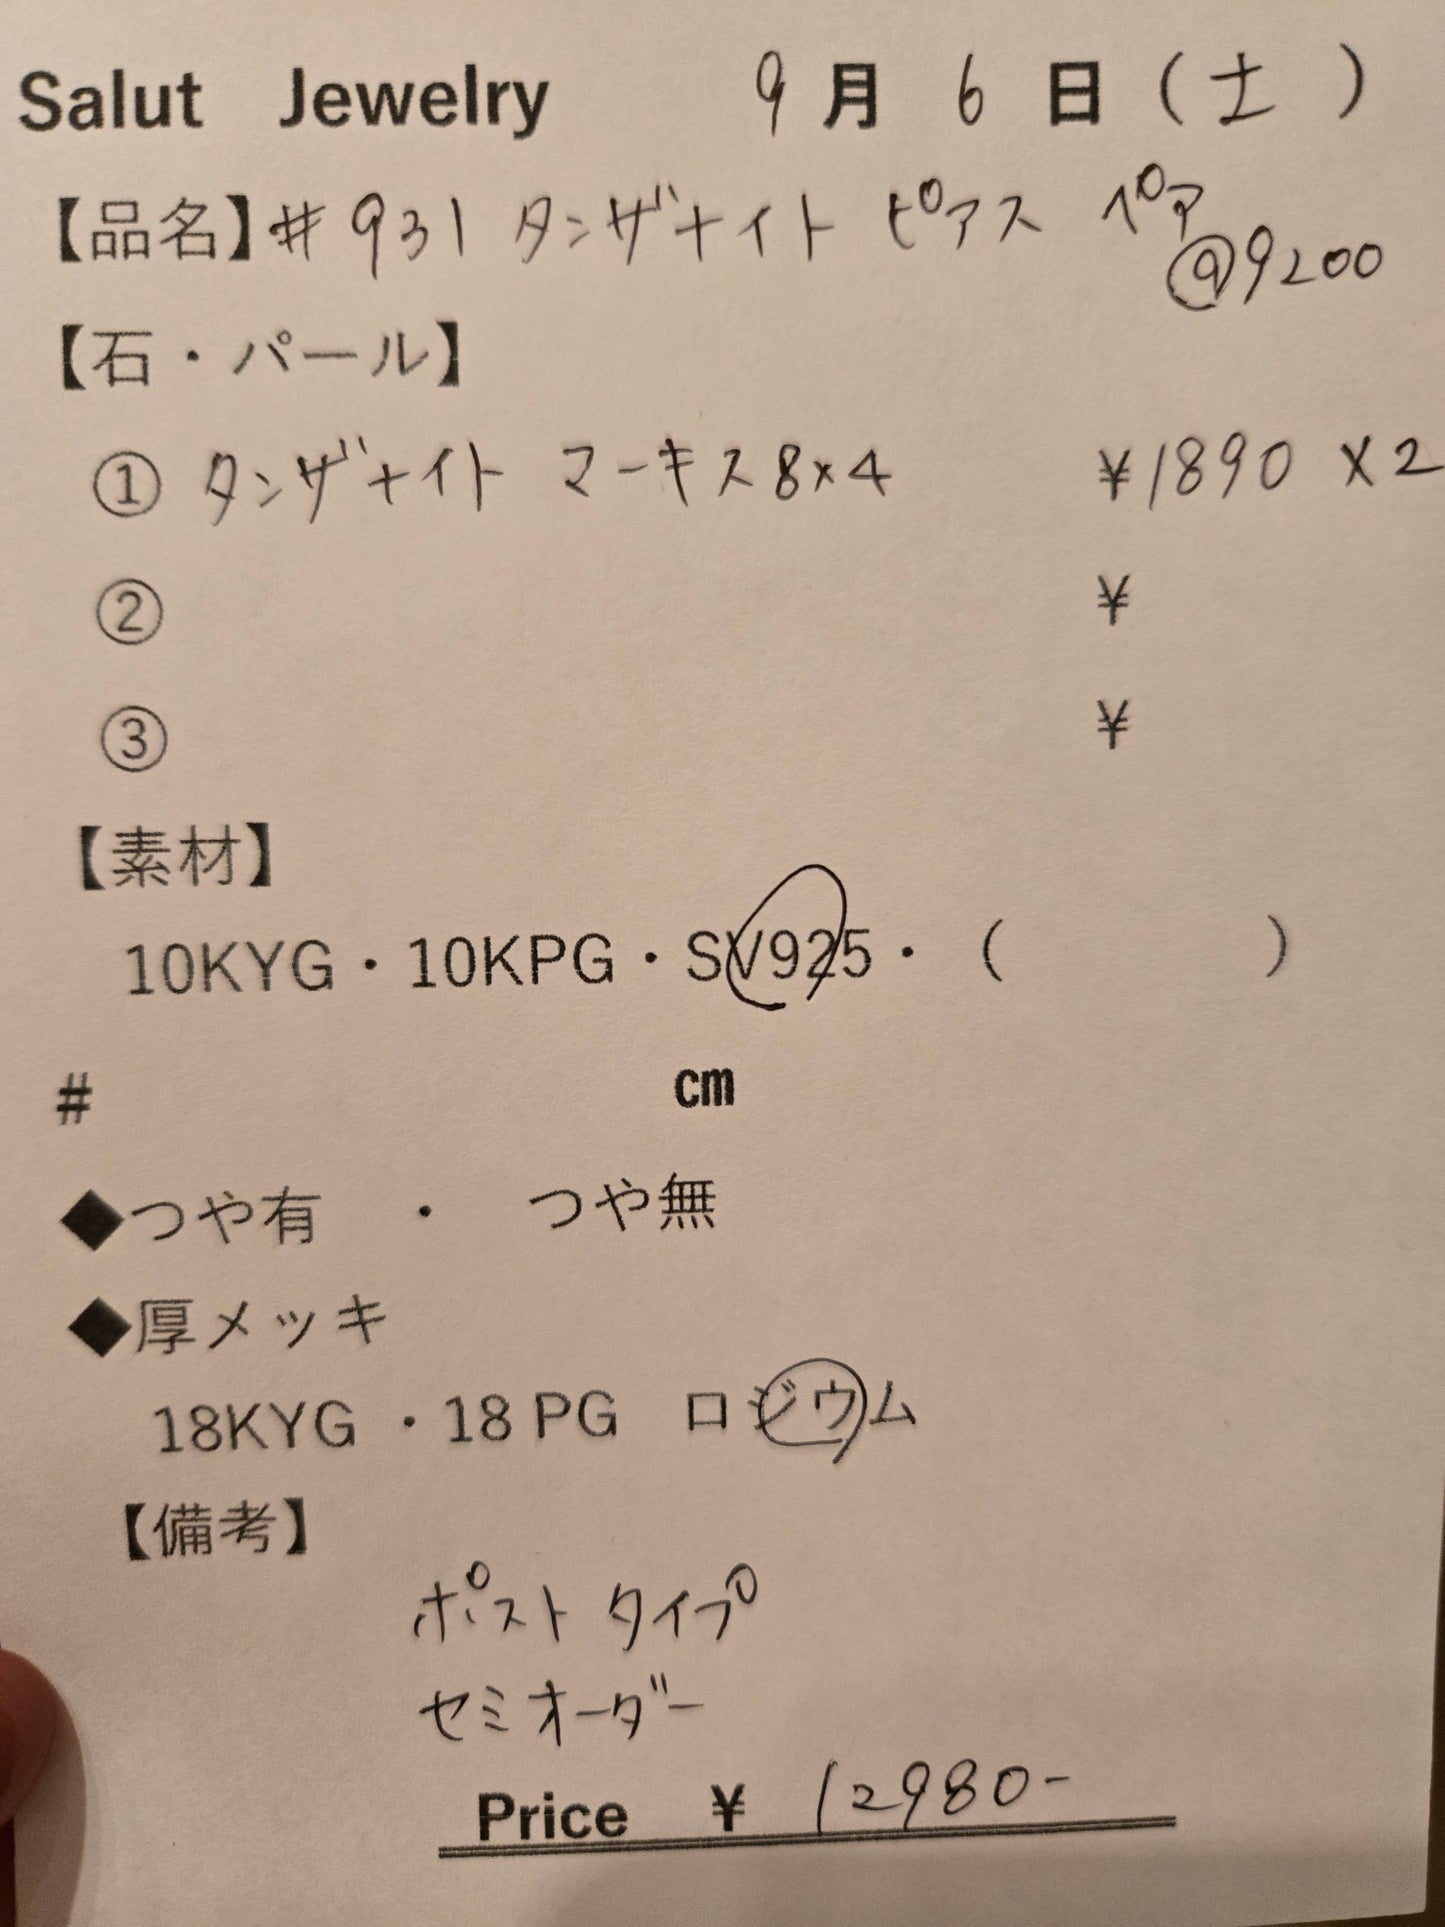 Salut Jewelry 9月 6日(土)
【品名】# 931 タンザナイト ピアス ペア
@9200
【石・パール】
① タンザナイト マーキス 8×4 ¥1890 ×2
② ¥
③ ¥
【素材】
10KYG・10KPG・SV925・( )
# cm
◆つや有 ・ つや無
◆厚メッキ
18KYG ・18 PG ロジウム
【備考】
ポスト タイプ
セミオーダー
Price ¥ 12980-